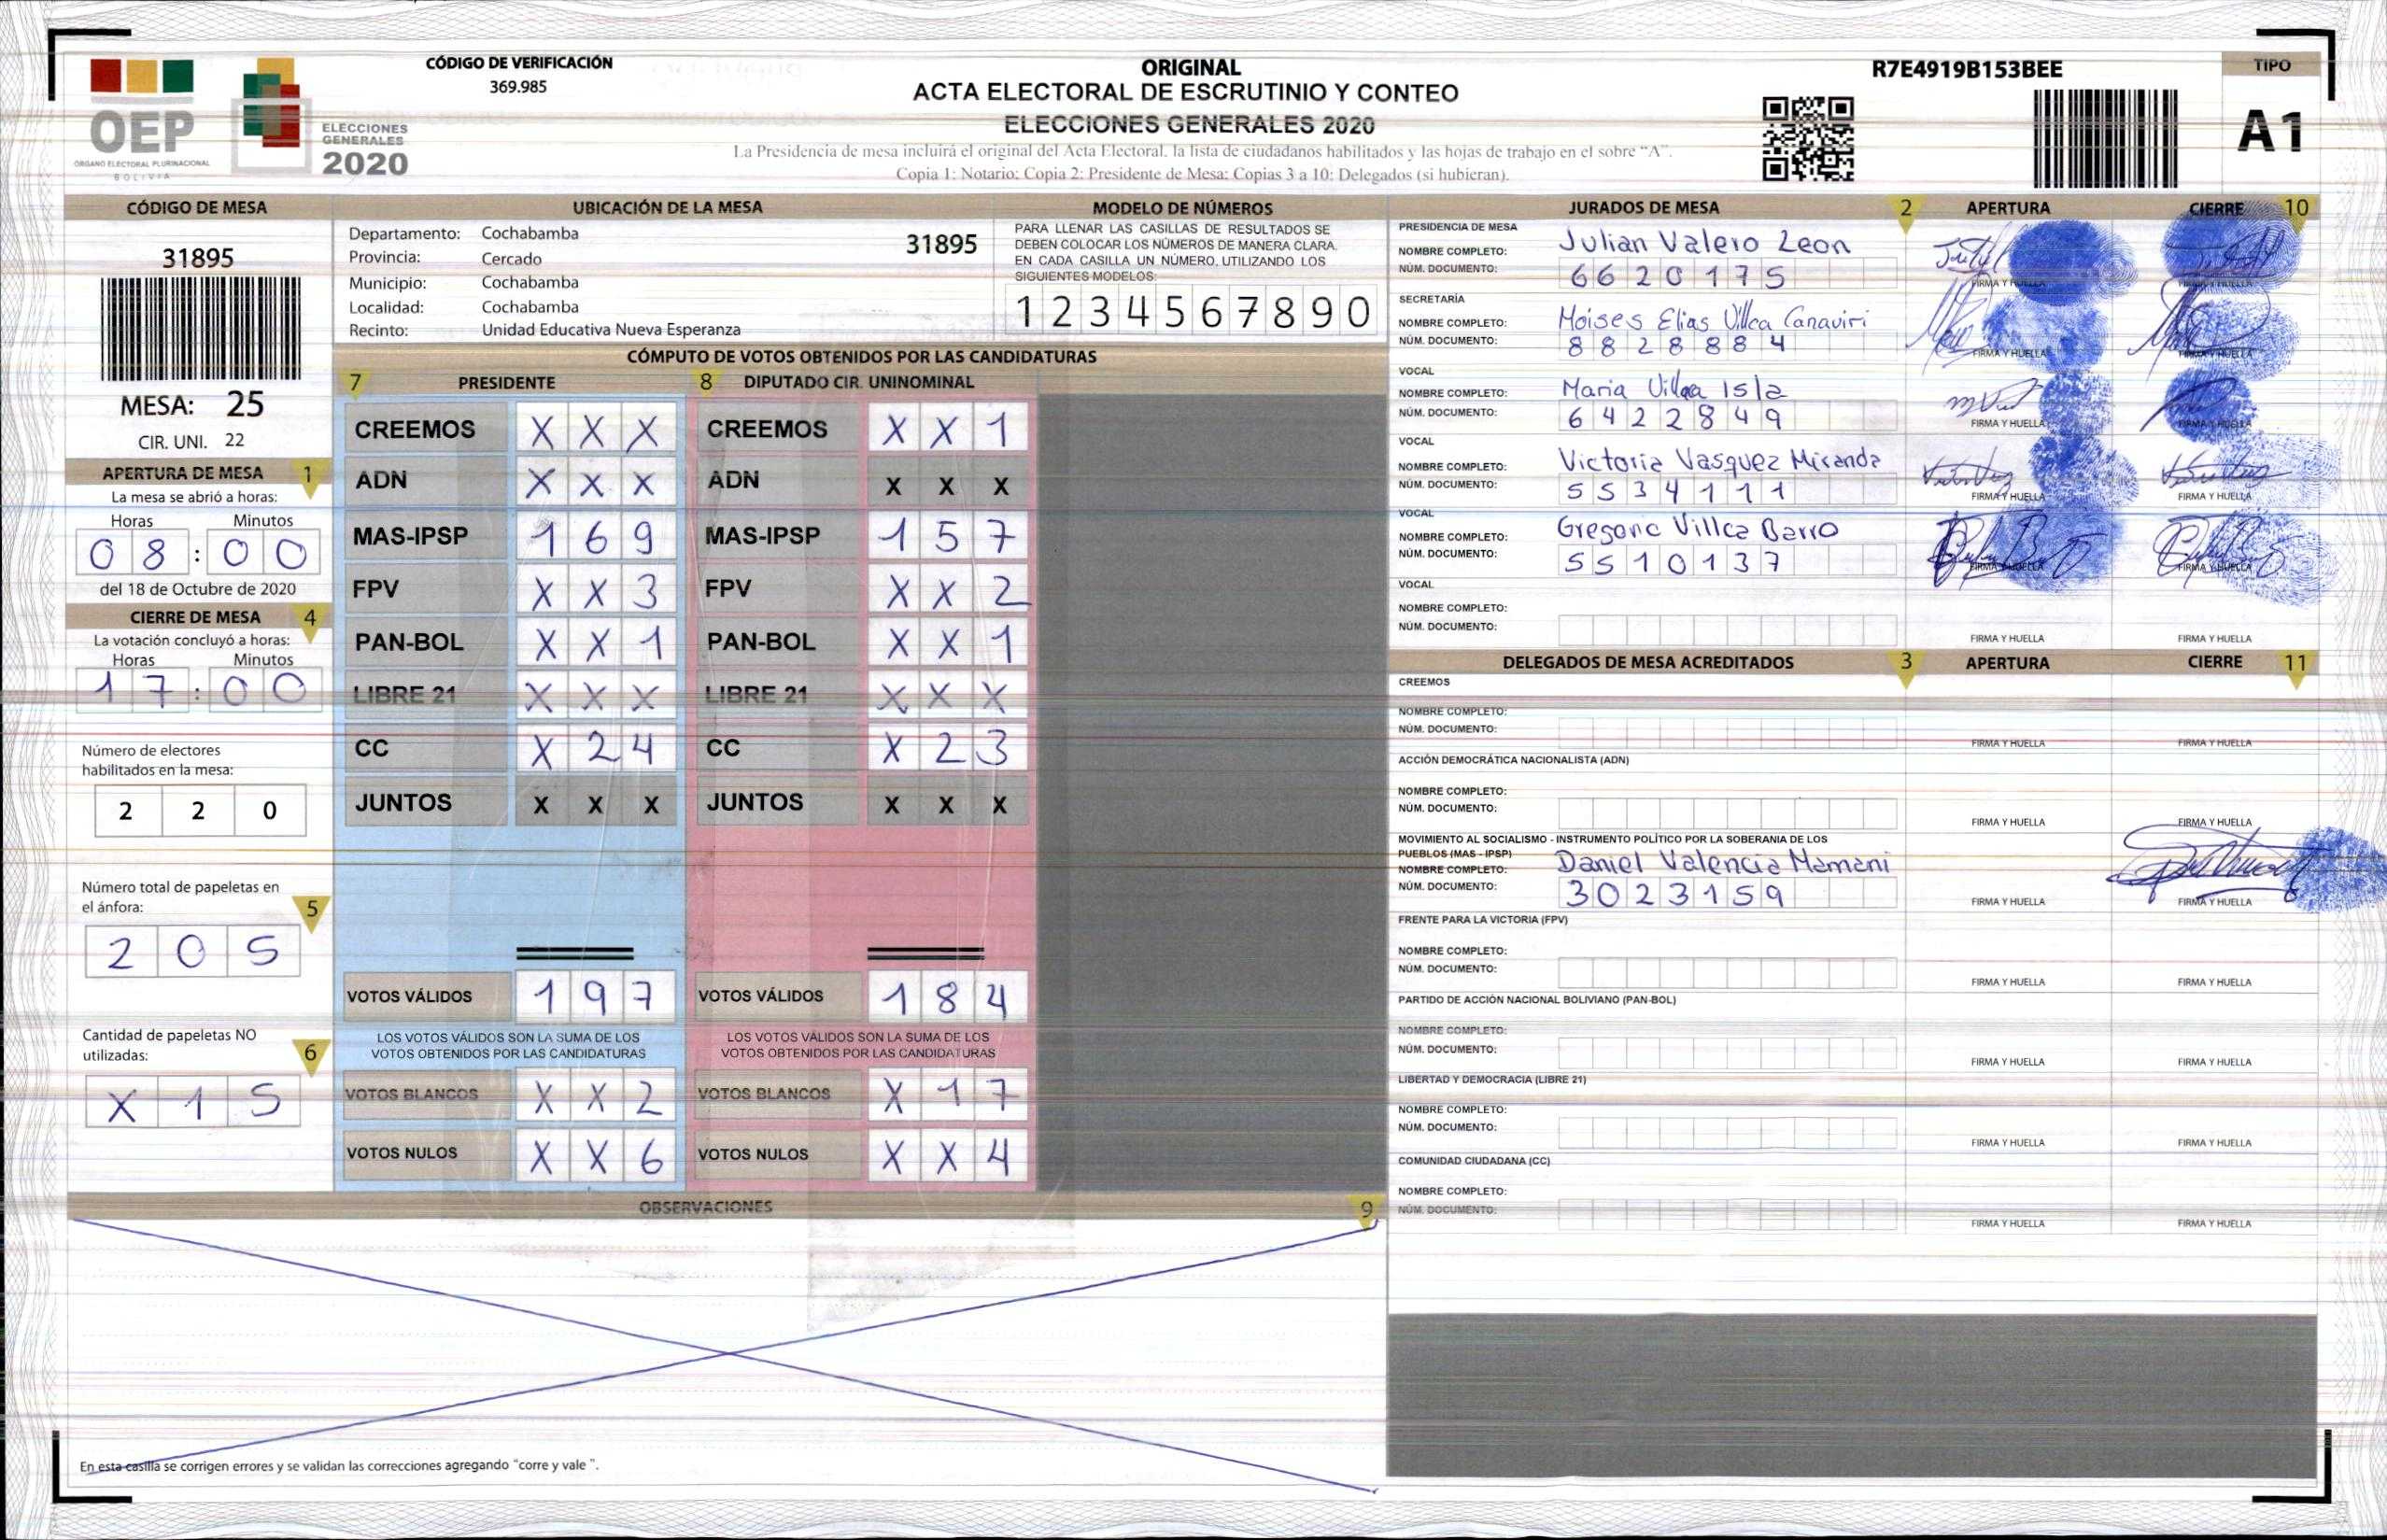 OEP
ÓRGANO ELECTORAL PLURINACIONAL
BOLIVIA
ELECCIONES
GENERALES
2020
CÓDIGO DE VERIFICACIÓN
369.985
ORIGINAL
ACTA ELECTORAL DE ESCRUTINIO Y CONTEO
ELECCIONES GENERALES 2020
La Presidencia de mesa incluirá el original del Acta Electoral, la lista de ciudadanos habilitados y las hojas de trabajo en el sobre “A”.
Copia 1: Notario; Copia 2: Presidente de Mesa; Copias 3 a 10: Delegados (si hubieran).
R7E4919B153BEE
TIPO
A1
CÓDIGO DE MESA
31895
MESA: 25
CIR. UNI. 22
APERTURA DE MESA 1
La mesa se abrió a horas:
Horas Minutos
0 8 : 0 0
del 18 de Octubre de 2020
CIERRE DE MESA 4
La votación concluyó a horas:
Horas Minutos
1 7 : 0 0
Número de electores
habilitados en la mesa:
2 2 0
Número total de papeletas en
el ánfora: 5
2 0 5
Cantidad de papeletas NO
utilizadas: 6
X 1 5
UBICACIÓN DE LA MESA
Departamento: Cochabamba
31895
Provincia: Cercado
Municipio: Cochabamba
Localidad: Cochabamba
Recinto: Unidad Educativa Nueva Esperanza
MODELO DE NÚMEROS
PARA LLENAR LAS CASILLAS DE RESULTADOS SE
DEBEN COLOCAR LOS NÚMEROS DE MANERA CLARA.
EN CADA CASILLA UN NÚMERO, UTILIZANDO LOS
SIGUIENTES MODELOS:
1 2 3 4 5 6 7 8 9 0
CÓMPUTO DE VOTOS OBTENIDOS POR LAS CANDIDATURAS
7 PRESIDENTE 8 DIPUTADO CIR. UNINOMINAL
CREEMOS X X X CREEMOS X X 1
ADN X X X ADN X X X
MAS-IPSP 1 6 9 MAS-IPSP 1 5 7
FPV X X 3 FPV X X 2
PAN-BOL X X 1 PAN-BOL X X 1
LIBRE 21 X X X LIBRE 21 X X X
CC X 2 4 CC X 2 3
JUNTOS X X X JUNTOS X X X
VOTOS VÁLIDOS 1 9 7 VOTOS VÁLIDOS 1 8 4
LOS VOTOS VÁLIDOS SON LA SUMA DE LOS LOS VOTOS VÁLIDOS SON LA SUMA DE LOS
VOTOS OBTENIDOS POR LAS CANDIDATURAS VOTOS OBTENIDOS POR LAS CANDIDATURAS
VOTOS BLANCOS X X 2 VOTOS BLANCOS X 1 7
VOTOS NULOS X X 6 VOTOS NULOS X X 4
OBSERVACIONES 9
En esta casilla se corrigen errores y se validan las correcciones agregando “corre y vale ”.
JURADOS DE MESA 2 APERTURA CIERRE 10
PRESIDENCIA DE MESA
NOMBRE COMPLETO: Julian Valero Leon
NÚM. DOCUMENTO: 6 6 2 0 1 7 5
FIRMA Y HUELLA FIRMA Y HUELLA
SECRETARÍA
NOMBRE COMPLETO: Moises Elias Villca Canaviri
NÚM. DOCUMENTO: 8 8 2 8 8 8 4
FIRMA Y HUELLA FIRMA Y HUELLA
VOCAL
NOMBRE COMPLETO: Maria Isla
NÚM. DOCUMENTO: 6 4 2 2 8 4 9
FIRMA Y HUELLA FIRMA Y HUELLA
VOCAL
NOMBRE COMPLETO: Victoria Vasquez Miranda
NÚM. DOCUMENTO: 5 5 3 4 1 1 1
FIRMA Y HUELLA FIRMA Y HUELLA
VOCAL
NOMBRE COMPLETO: Gregorio Villca Barro
NÚM. DOCUMENTO: 5 5 1 0 1 3 7
FIRMA Y HUELLA FIRMA Y HUELLA
VOCAL
NOMBRE COMPLETO:
NÚM. DOCUMENTO:
FIRMA Y HUELLA FIRMA Y HUELLA
DELEGADOS DE MESA ACREDITADOS 3 APERTURA CIERRE 11
CREEMOS
NOMBRE COMPLETO:
NÚM. DOCUMENTO:
FIRMA Y HUELLA FIRMA Y HUELLA
ACCIÓN DEMOCRÁTICA NACIONALISTA (ADN)
NOMBRE COMPLETO:
NÚM. DOCUMENTO:
FIRMA Y HUELLA FIRMA Y HUELLA
MOVIMIENTO AL SOCIALISMO - INSTRUMENTO POLÍTICO POR LA SOBERANIA DE LOS
PUEBLOS (MAS - IPSP)
NOMBRE COMPLETO: Daniel Valencia Mamani
NÚM. DOCUMENTO: 3 0 2 3 1 5 9
FIRMA Y HUELLA FIRMA Y HUELLA
FRENTE PARA LA VICTORIA (FPV)
NOMBRE COMPLETO:
NÚM. DOCUMENTO:
FIRMA Y HUELLA FIRMA Y HUELLA
PARTIDO DE ACCIÓN NACIONAL BOLIVIANO (PAN-BOL)
NOMBRE COMPLETO:
NÚM. DOCUMENTO:
FIRMA Y HUELLA FIRMA Y HUELLA
LIBERTAD Y DEMOCRACIA (LIBRE 21)
NOMBRE COMPLETO:
NÚM. DOCUMENTO:
FIRMA Y HUELLA FIRMA Y HUELLA
COMUNIDAD CIUDADANA (CC)
NOMBRE COMPLETO:
NÚM. DOCUMENTO:
FIRMA Y HUELLA FIRMA Y HUELLA